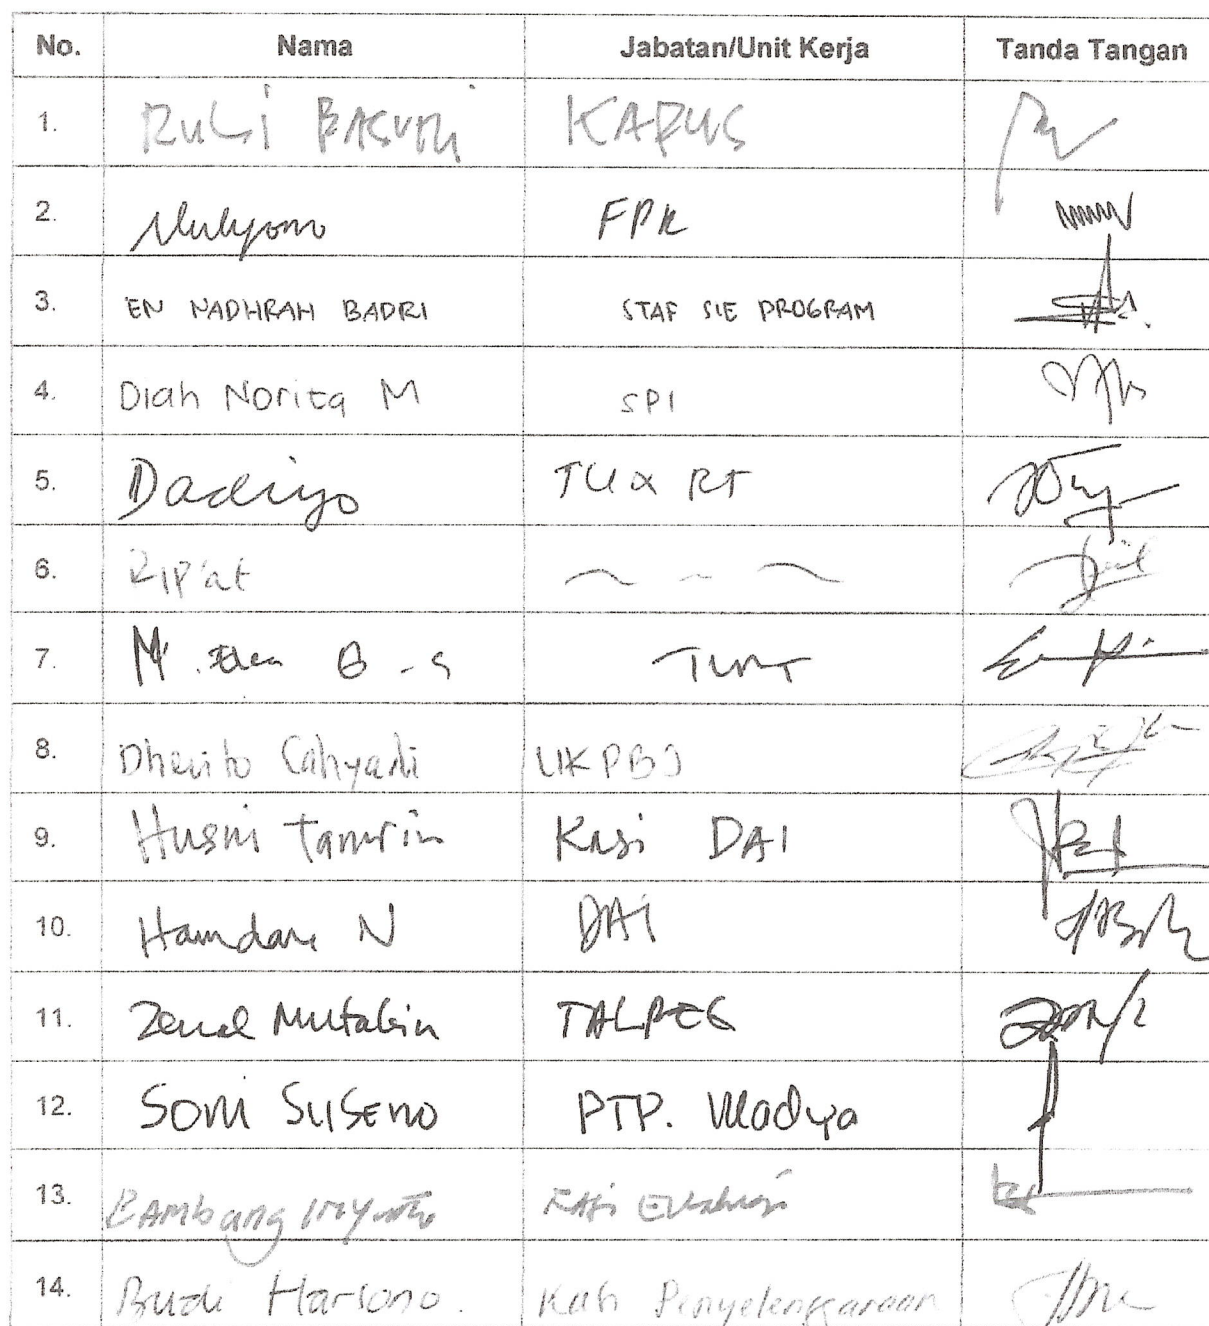 No. Nama Jabatan/Unit Kerja Tanda Tangan
1. RuLi BASUKi KAPUS
2. Mulyono FPK
3. EN NADHRAH BADRI STAF SIE PROGRAM
4. Diah Norita M SPI
5. Dadiyo TU & RT
6. Rip'at
7. M. G - S TURT
8. Cahyadi UKPBJ
9. Husni Tamrin Kasi DAI
10. Hamdani N DAI
11. Zenal Mutakin TALPEG
12. SONI SUSENO PTP. Madya
13. BAMbang
14. Budi Harsono. Penyelenggaraan